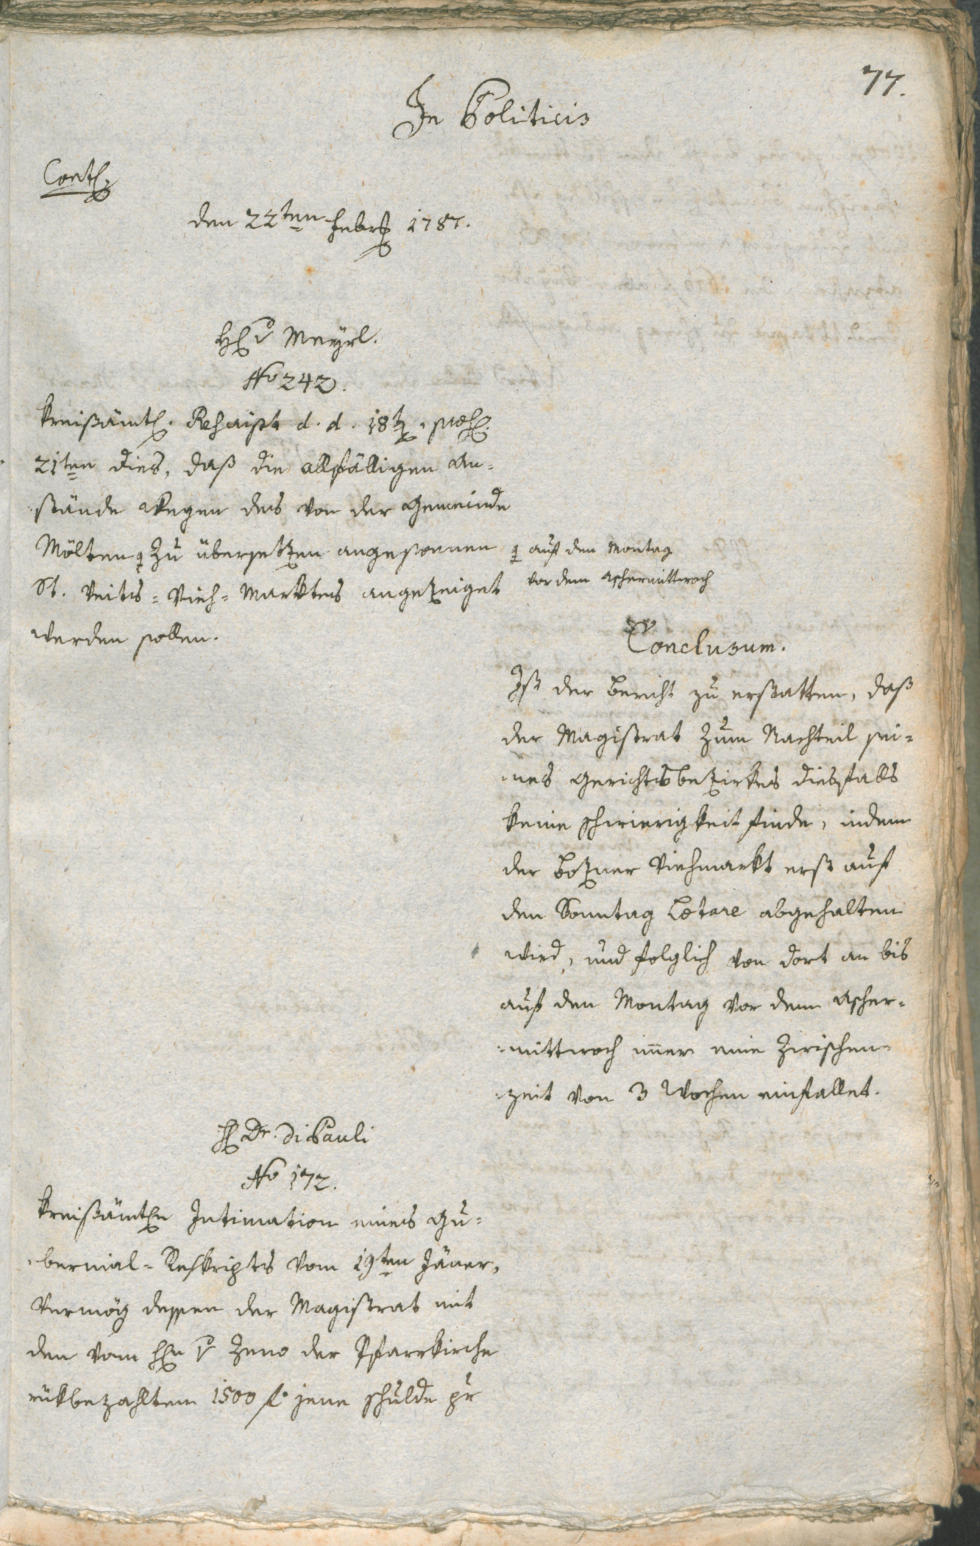 77.
In Politicis
Cont:
den 22ten Febr: 1787.
H: v Meyrl.
No 242.
Kreißämtl: Reskript d. d. 18t: præs:
21ten dies, daß die allfälligen An-
stände wegen des von der Gemeinde
Mölten zu übersetzen angesonnen
auf den Montag
vor dem Aschermittwoch
St. Veits-Vieh-Marktes angezeiget
werden sollen.
Conclusum.
Ist der Bericht zu erstatten, daß
der Magistrat zum Nachteil sei-
nes Gerichtsbezirkes diesfalls
keine Schwierigkeit finde, indem
der Bozner Viehmarkt erst auf
den Sonntag Letare abgehalten
wird, und folglich von dort an bis
auf den Montag vor dem Ascher-
mittwoch immer eine Zwischen-
zeit von 3 Wochen einfallet.
H: Dr. di Pauli
No 172.
Kreißämtl: Intimation eines Gu-
bernial-Reskripts vom 19ten Jäner,
vermög dessen der Magistrat mit
den vom H: v Zeno der Pfarrkirche
rükbezahlten 1500 f. jene Schulde pr